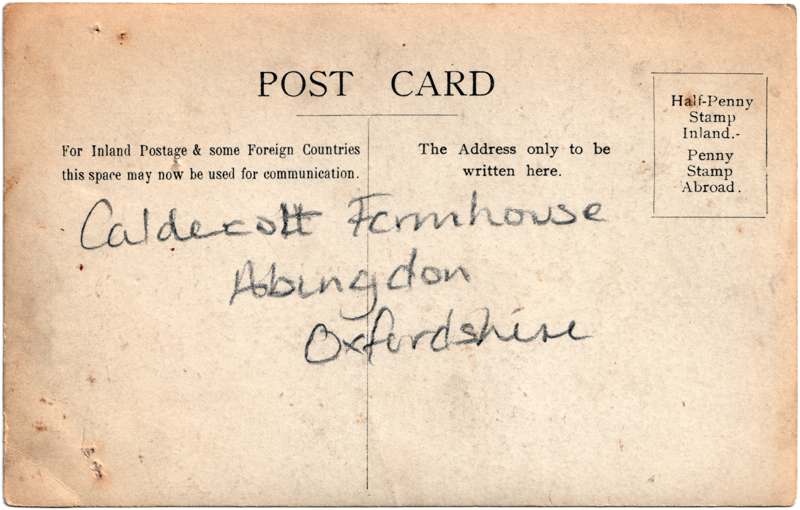 POST CARD
For Inland Postage & some Foreign Countries
this space may now be used for communication.
The Address only to be
written here.
Half-Penny
Stamp
Inland.-
Penny
Stamp
Abroad.
Caldecott Farmhouse
Abingdon
Oxfordshire